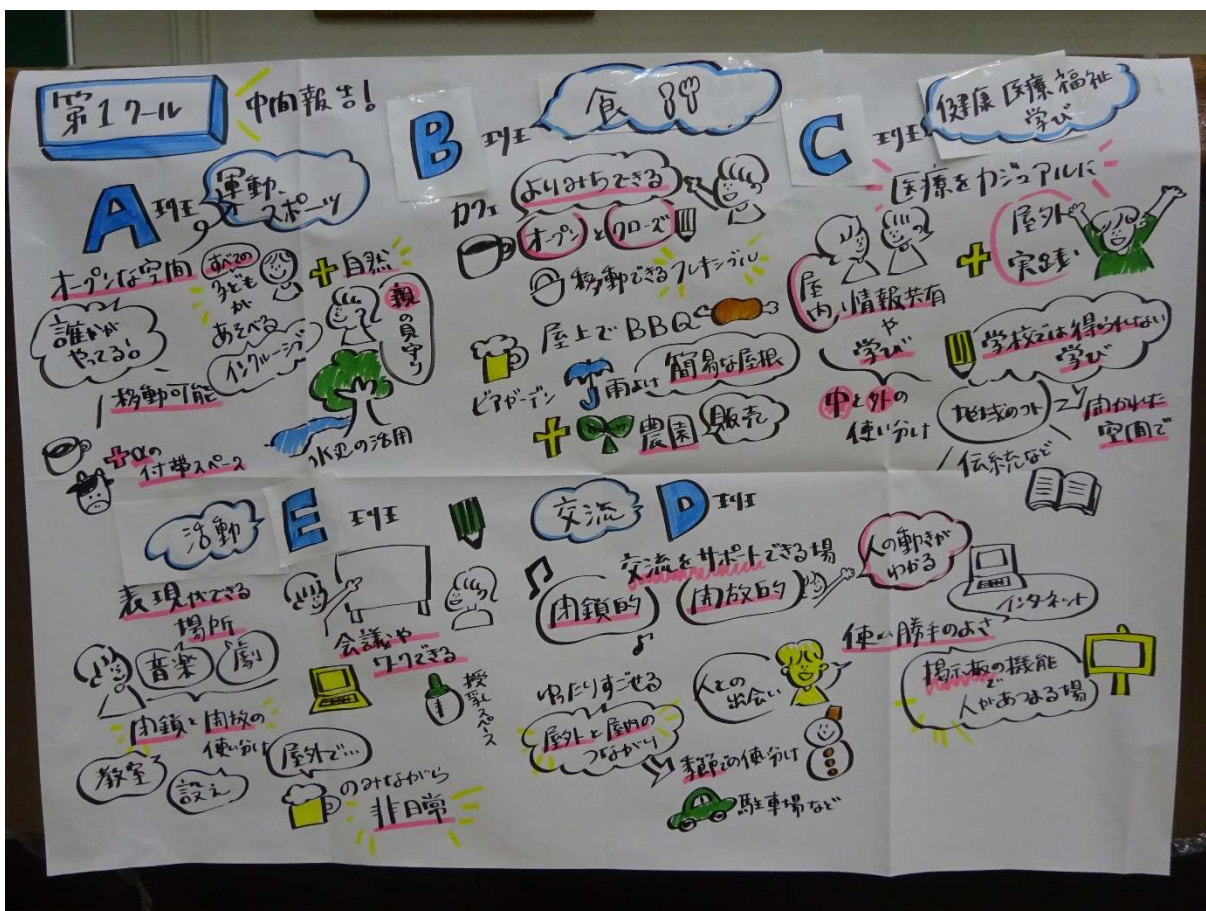 第1クール
中間報告!
A班
運動、
スポーツ
オープンな空間
すべての
子どもが
あそべる
インクルーシブ
誰かが
やってる!
移動可能
+αの
付帯スペース
+自然
親の見守り
水辺の活用
B班
食
カフェ
よりみちできる
オープンとクローズ
移動できるフレキシブル
屋上でBBQ
ビアガーデン
雨よけ
簡易な屋根
+
農園
販売
C班
健康 医療 福祉
学び
医療をカジュアルに
屋内
情報共有
や
学び
+
屋外
実践
中と外の
使い分け
学校では得られない
学び
地域のソフト
伝統など
開かれた
空間で
活動
E班
表現ができる
場所
音楽
劇
閉鎖と開放の
使い分け
教室
設え
会議や
ワークできる
授乳スペース
屋外で…
のみながら
非日常
交流
D班
交流をサポートできる場
閉鎖的
開放的
人の動きが
わかる
インターネット
使い勝手のよさ
掲示板の機能
で
人があつまる場
ゆったりすごせる
屋外と屋内の
つながり
人との
出会い
季節での使い分け
駐車場など